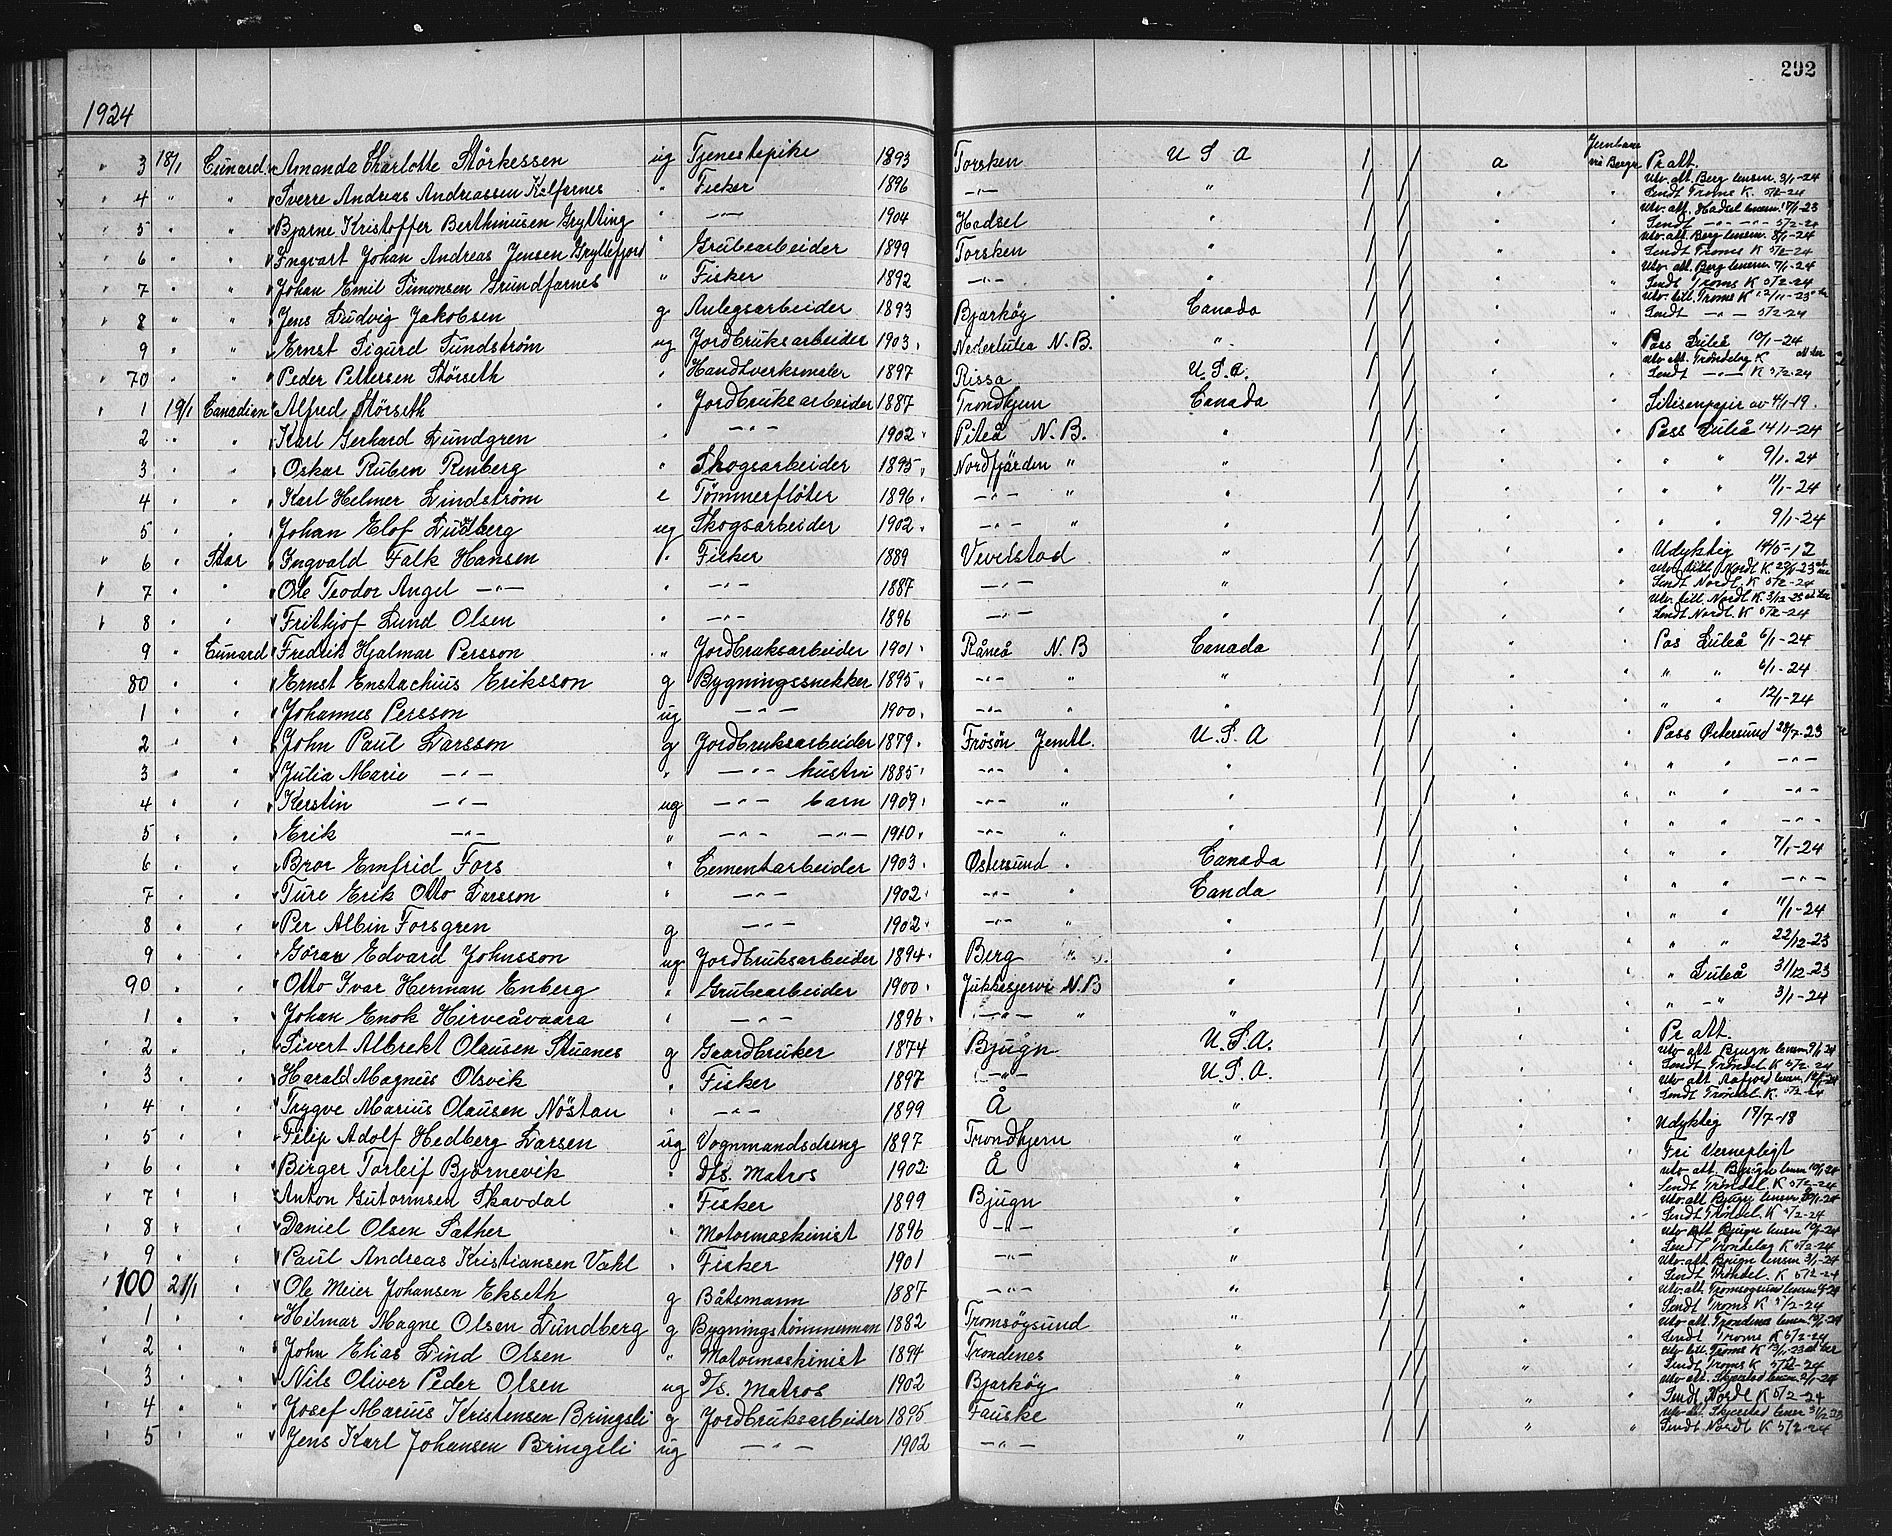 292
1924
" 3 18/1 Cunard " Amanda Charlotte Störkessen ug Tjenestepike 1893 Torsken U S A / / a Jernbane via Bergen Pr att.
4 " " " Sverre Andreas Andreassen Kalfarnes " Fisker 1896 —"— " / / Utv. att. Berg lensm. 3/1-24 Sendt Troms K. 5/2-24
5 " " " Bjarne Kristoffer Berthinusen Grytting " —"— 1904 Hadsel " / / Utv. att. Hadsel lensm. 17/1-23 Sendt —"— 5/2-24
6 " " " Ingvart Johan Andreas Jensen Gryllefjord " Grubearbeider 1899 Torsken " / / Utv. att. Berg lensm. 8/1-24 Sendt Troms K 5/2-24
7 " " " Johan Emil Simonsen Grundfarnes " Fisker 1892 —"— " / / Utv. att. Berg lensm. 7/1-24 Sendt Troms K 5/2-24
8 " " " Jens Ludvig Jakobsen g Anlegsarbeider 1893 Bjarköy Canada / / Utv. bill. Troms K 12/11-23 Sendt —"— 5/2-24
9 " " " Ernst Sigurd Sundström ug Jordbruksarbeider 1903 Nederlulea N.B. " / / Pass Luleå 10/1-24
70 " " " Peder Pettersen Störseth " Handtverksmaler 1897 Rissa U.S.A. / / Utv att. Tröndelag K Sendt —"— K 5/2-24
1 19/1 Canadien " Alfred Störseth " Jordbruksarbeider 1887 Trondhjem Canada / / Sitisenpapir av 4/1-19.
2 " " " Karl Gerhard Lundgren " —"— 1902 Piteå N.B. " / / Pass Luleå 14/1-24
3 " " " Oskar Ruben Renberg " Skogsarbeider 1895 Nordfjärden " " / / " " 9/1-24
4 " " " Karl Helmer Lindström e Tömmerflöter 1896 —"— " " / / " " 11/1-24
5 " " " Johan Elof Lundberg ug Skogsarbeider 1902 —"— " " / / " " 9/1-24
6 " Star " Ingvald Falk Hansen " Fisker 1889 Vevelstad " / / Udyktig 14/5-12
7 " " " Ole Teodor Angel —"— " —"— 1887 —"— " / / Utv. bill. Nordl K. Sendt Nordl. K 5/2-24
8 " " " Frithjof Lund Olsen " —"— 1896 —"— / / Utv. bill. Nordl K 3/12-23 Sendt Nordl. K 5/2-24
9 " Cunard " Fredrik Hjalmar Persson " Jordbruksarbeider 1901 Råneå N.B Canada / / Pas Luleå 5/1-24
80 " " " Ernst Enstachius Eriksson g Bygningssnekker 1895 —"— " " / / " " 4/1-24
1 " " " Johannes Persson ug —"— 1900 —"— " " / / " " 12/1-24
2 " " " John Paul Larsson g Jordbruksarbeider 1879 Frösön Jemtl. U.S.A / / Pass Östersund 28/7-23
3 " " " Julia Marie —"— " —"— hustru 1885 —"— " " / / " " —"—
4 " " " Kerstin —"— ug —"— barn 1909 —"— " " / / " " —"—
5 " " " Erik —"— " —"— —"— 1910 —"— " " / / " " —"—
6 " " " Bror Emfrid Fors " Cementarbeider 1903 Östersund " Canada / / " " 7/1-24
7 " " " Ture Erik Otto Larsson " —"— 1902 —"— " Canda / / " " —"—
8 " " " Per Albin Forsgren g —"— 1902 —"— " " / / " " 11/1-24
9 " " " Göran Edvard Johnsson ug Jordbruksarbeider 1894 Berg " " / / " " 22/12-23
90 " " " Otto Ivar Herman Enberg " Grubearbeider 1900 Jukkasjervi N.B " / / " Luleå 31/12-23
1 " " " Johan Enok Hirveåvaara " —"— 1896 —"— " " / / " —"— 3/1-24
2 " " " Sivert Albrekt Olausen Stuanes g Gaardbruker 1874 Bjugn U.S.A. / / Pr att.
3 " " " Harald Magnus Olsvik " Fisker 1897 —"— U.S.A. / / Utv att Bjugn lensm 9/1-24 Sendt Tröndel. K 5/2-24
4 " " " Trygve Marius Olausen Nöstan " —"— 1899 Å " / / Utv att Aafjord lensm Sendt Tröndel. K. 5/2-24
5 " " " Filip Adolf Hedberg Larsen ug Vognmandsdreng 1897 Trondhjem " / / Udyktig 17/7-18
6 " " " Birger Torleif Björnevik " D/s. Matros 1902 Å " / / Fri Vernepligt
7 " " " Anton Gutormsen Skavdal " Fisker 1899 Bjugn " / / Utv. att. Bjugn lensm 10/1-24 Sendt Tröndel. K 5/2-24
8 " " " Daniel Olsen Sæther " Motormaskinist 1896 —"— " / / Utv. att Bjugn lensm Sendt Tröndel. K 5/2-24
9 " " " Paul Andreas Kristiansen Vakl " Fisker 1901 —"— " / / Utv att Bjugn lensm 10/1-24 Sendt Tröndelag K 5/2-24
100 21/1 " " Ole Meier Johansen Ekseth g Båtsmann 1887 —"— " / / Utv. att Bjugn lensm 3/1-24 Sendt Tröndel. K 5/2-24
1 " " Hilmar Magne Olsen Lundberg g Bygningstömmerman 1882 Tromsöysund " / / Utv. att. Tromsöysund lensm Sendt Troms K 5/2-24
2 " " " John Elias Lind Olsen " Motormaskinist 1894 Trondenes " / / Utv att. Trondenes lensm Sendt Troms K 5/2-24
3 " " " Nils Oliver Peder Olsen ug D/s. Matros 1902 Bjarköy / / Utv bill. Troms K Sendt Troms K 5/2-24
4 " " " Josef Marius Kristensen Bringsli g Jordbruksarbeider 1895 Fauske " / / Utv att. Skjerstad lensm Sendt Nordl K 5/2-24
5 " " " Jens Karl Johansen Bringsli ug —"— 1902 —"— " / / Utv att. Skjerstad lensm Sendt Nordl K 5/2-24